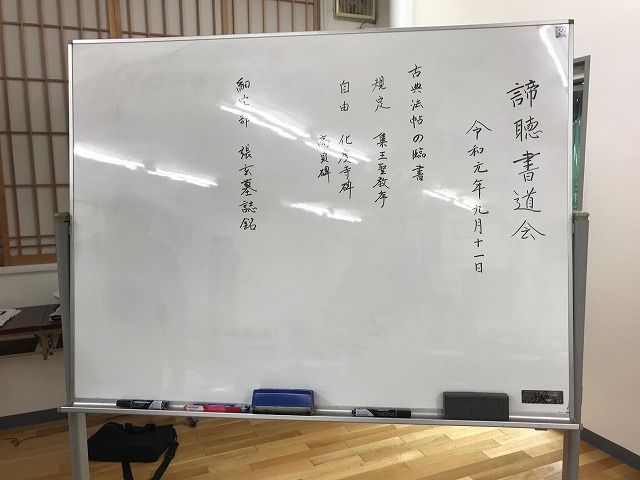 諦聴書道会
令和元年九月十一日
古典法帖の臨書
規定 集王聖教序
自由 化度寺碑
高貞碑
細字部 張玄墓誌銘